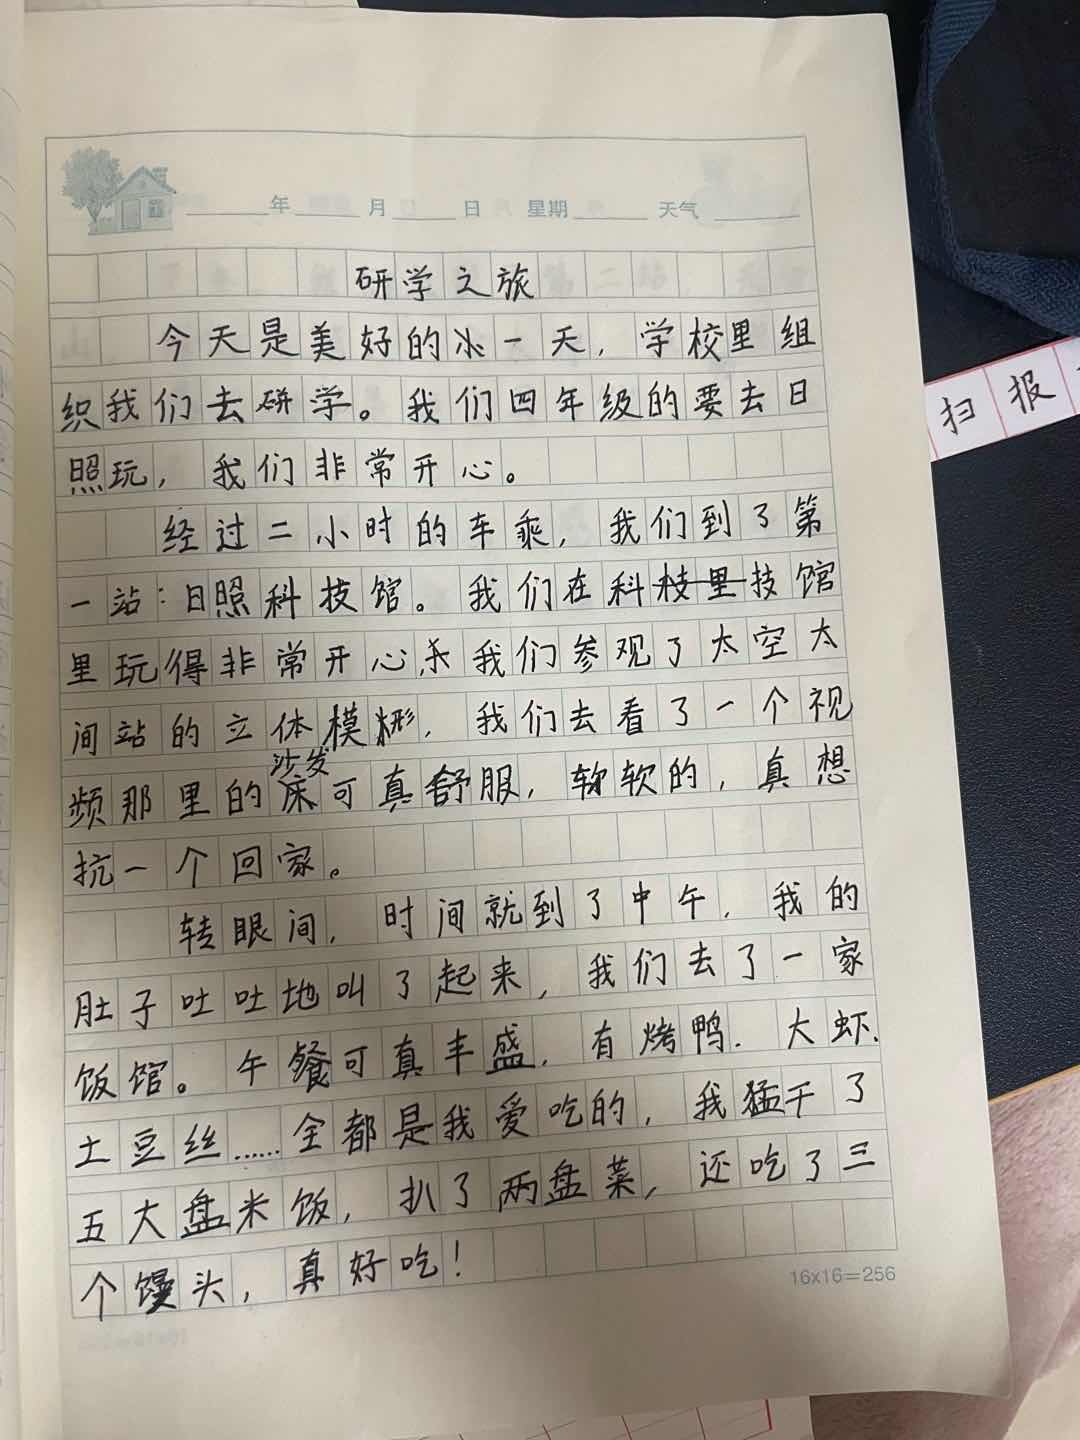 年 月 日 星期 天气
研学之旅
今天是美好的一天，学校里组
织我们去研学。我们四年级的要去日
照玩，我们非常开心。
经过二小时的车乘，我们到了第
一站：日照科技馆。我们在科技馆
里玩得非常开心，我们参观了太空太
间站的立体模形，我们去看了一个视
沙发
频那里的床可真舒服，软软的，真想
抗一个回家。
转眼间，时间就到了中午，我的
肚子吐吐地叫了起来，我们去了一家
饭馆。午餐可真丰盛，有烤鸭、大虾、
土豆丝……全都是我爱吃的，我猛干了
五大盘米饭，扒了两盘菜，还吃了三
个馒头，真好吃！
16x16=256
扫报